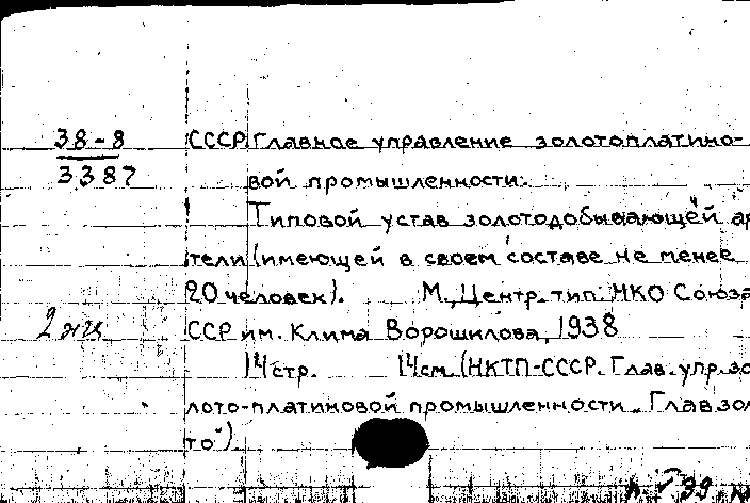 38-8
3387
СССР Главное управление золотоплатино-
вой промышленности.
Типовой устав золотодобывающей ар
тели (имеющей в своем составе не менее
20 человек). М., Центр. тип. НКО Союза
2 экз
ССР им. Клима Ворошилова, 1938
14 стр. 14 см. (НКТП-СССР. Глав. упр. зо
лото-платиновой промышленности. Главзол
то").